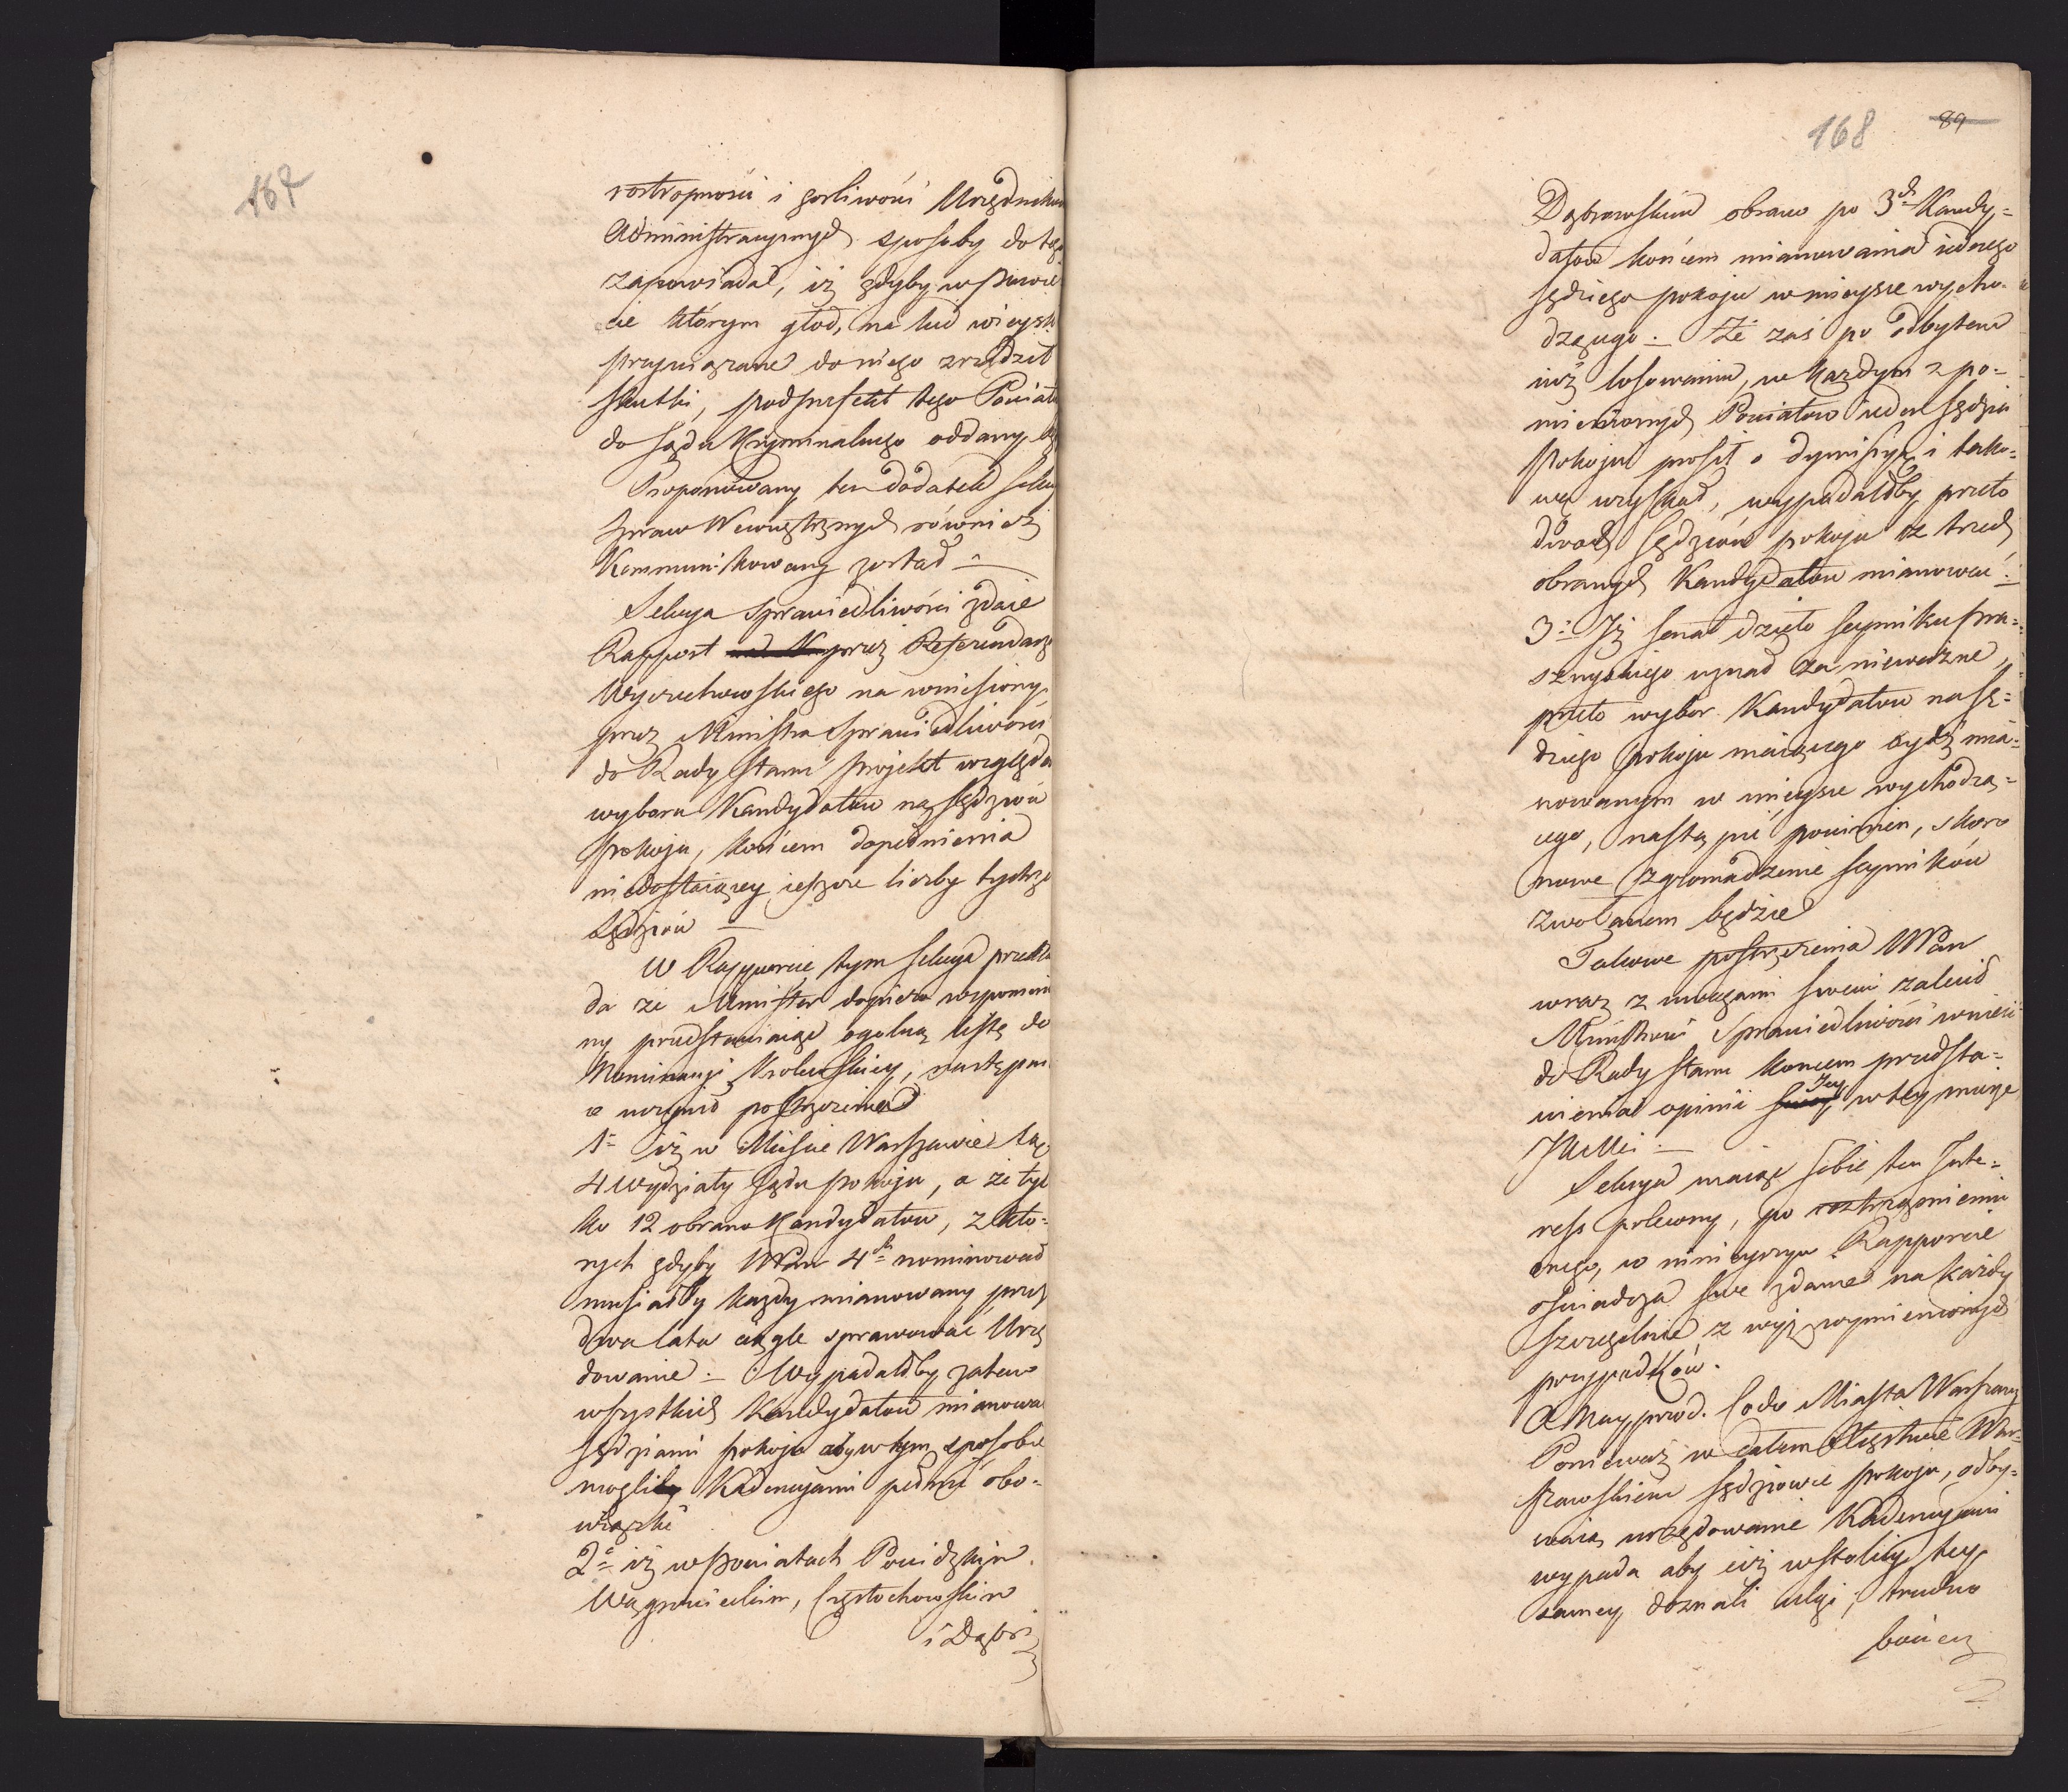 167
roztropności i gorliwości Urzędników
Administracyinych sposoby do tego
zapowiadał, iż gdyby w Powie-
cie którym głód, na lud wieysk
przywiązane do niego zrządził
skutki, podprefekt tego Powiatu
do Sądu Kryminalnego oddany
Proponowany ten dodatek Sekcyi
Spraw Wewnętrznych również
Kommunikowany został —
Sekcya Sprawiedliwości zdaie
Rapport przez Referendarza
Wyczechowskiego na wniesiony
przez Ministra Sprawiedliwości
do Rady Stanu projekt względem
wyboru Kandydatów na Sędziów
Pokoju, końcem dopełnienia
niedostaiącey ieszcze liczby tychże
Sędziów —
W Rapporcie tym Sekcya przekła
da że Minister dopiero wspomnio
ny przedstawiaiąc ogólną listę do
Nominacyi Królewskiey, następu
e uczynił postrzeżenia
1o iż w Mieście Warszawie są
4 Wydziały Sądu pokoju, a że tyl
ko 12 obrano Kandydatów, z któ=
rych gdyby WPan 4ch nominował
musiałby każdy mianowany przez
dwa lata ciągle sprawować Urzę
dowanie. — Wypadałoby zatem
wszystkich Kandydatów mianowa
Sędziami pokoju aby w tym sposobie
mogli Kadencyami pełnić obo=
wiązki
2o iż w Powiatach Powidzkim
Wągrowieckim, Częstochowskim
i Dąbr
168 89
Dąbrowskim obrano po 3ch Kandy=
datów końcem mianowania iednego
Sędziego pokoju w mieysce wycho-
dzącego. — Że zaś po odbytem
iuż losowaniu, w każdym z po-
mienionych Powiatów ieden Sędzia
Pokoju prosił o dymissyą i tako-
wą uzyskał, wypadałoby przeto
dwóch Sędziów pokoju z trzech
obranych Kandydatów mianować. —
3o Iż Senat dzieło Seymiku Pra=
sznyskiego uznał za nieważne,
przeto wybor Kandydatów na Sę=
dziego pokoju maiącego bydź mia=
nowanym w mieysce wychodzą=
cego, nastąpić powinien, skoro
nowe zgromadzenie Seymików
zwołanem będzie
Takowe postrzeżenia WPan
wraz z uwagami swemi zalecił
Ministrowi Sprawiedliwości wnieść
do Rady Stanu koncem przedsta=
wienia opinii swey Jey w tey mierze
JKMci —
Sekcya maiąc sobie ten Inte=
ress polecony, po roztrząśnieniu
onego, w ninieyszym Rapporcie
oświadcza swe zdanie na każdy
szczególnie z wyż wymienionych
przypadków.
A Nayprzod. Co do Miasta Warszawy
Ponieważ w całem Xięstwie War=
szawskiem Sędziowie Pokoju, odby=
waią urzędowanie Kadencyami
wypada aby iuż w stolicy tey
samey doznali ulgi; trudno
bowiem